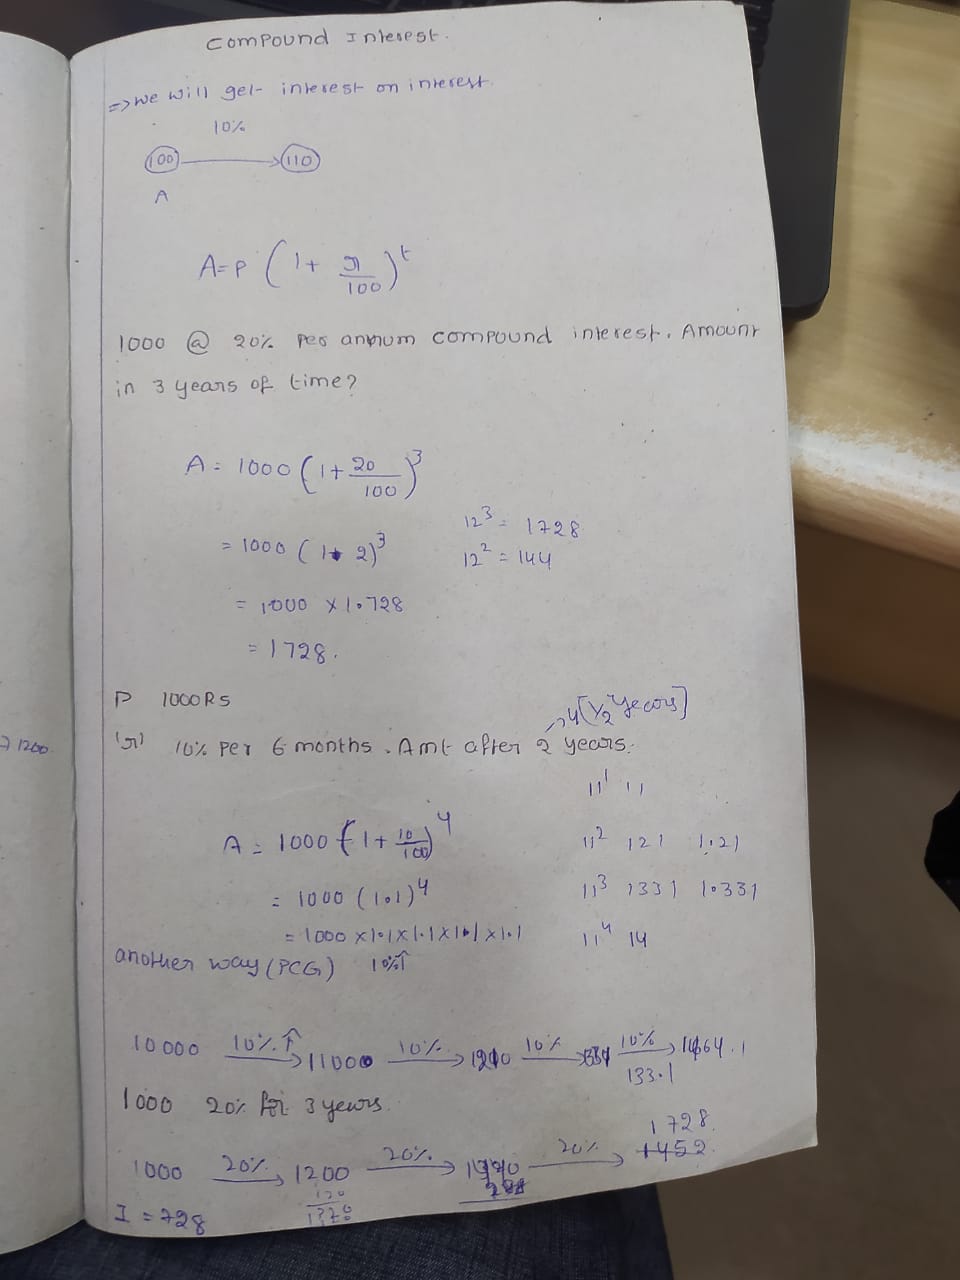 Compound Interest.
=> we will get interest on interest.
10%
100 → 110
A
A=P (1+ r/100)^t
1000 @ 20% Per annum compound interest. Amount
in 3 years of time?
A= 1000 (1+ 20/100)^3
= 1000 (1+ 2)^3 12^3 = 1728
12^2 = 144
= 1000 X 1.728
= 1728.
P 1000RS
→4[1/2 years]
7 1200
'r' 10% per 6 months. Amt after 2 years.
11^1 11
A= 1000 (1+ 10/100)^4 11^2 121 1.21
= 1000 (1.1)^4 11^3 1331 1.331
= 1000 X1.1X1.1X1.1X1.1 11^4 14
another way (PCG) 10%↑
10000 10%↑→ 11000 10%→ 1210 10%→ 10%→ 1464.1
133.1
1000 20% for 3 years.
1728.
1000 20%→ 1200 20%→ 20%→ 1452
120
I = 728